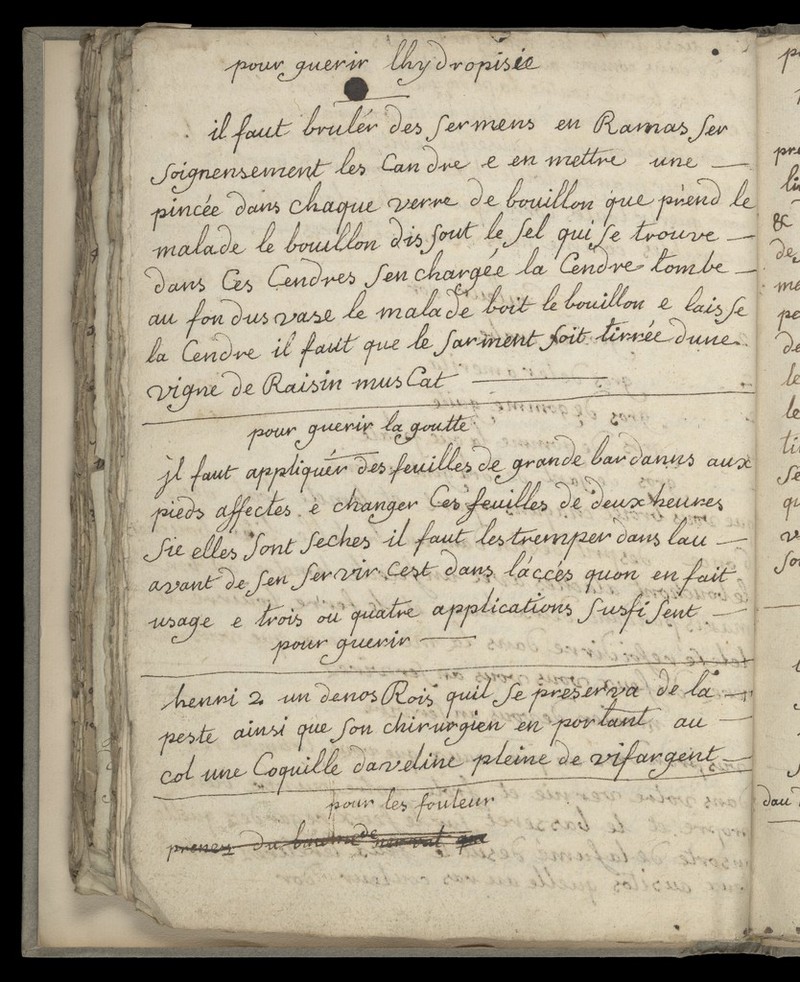 pour guerir lhydropisie
il faut bruler des sermens en Ramasser
soignensement les Candre e en mettre une
pincée dans chaque verre de bouillon que prend le
malade le bouillon dissout le sel qui se trouve
dans Ces Cendres sen chargée la Cendre tombe
au fon dus vase le malade boit le bouillon e laisse
la Cendre il faut que le sarment soit tirrée dune
vigne de Raisin musCat
pour guerir la goutte
jl faut appliquér des feuilles de grande bardanns aux
pieds affectes e changer Ces feuilles de deux heures
sie elles sont seches il faut les tremper dans lau
avant de sen servir Cest dans láccés quon en fait
usage e trois ou quatre applications susfisent
pour guerir
henri 2 un denos Rois quil se preserva de la
peste ainsi que son chirurgien en portant au
col une Coquille daveline pleine de vifargent
pour les fouleur
prenez du baume de nerval